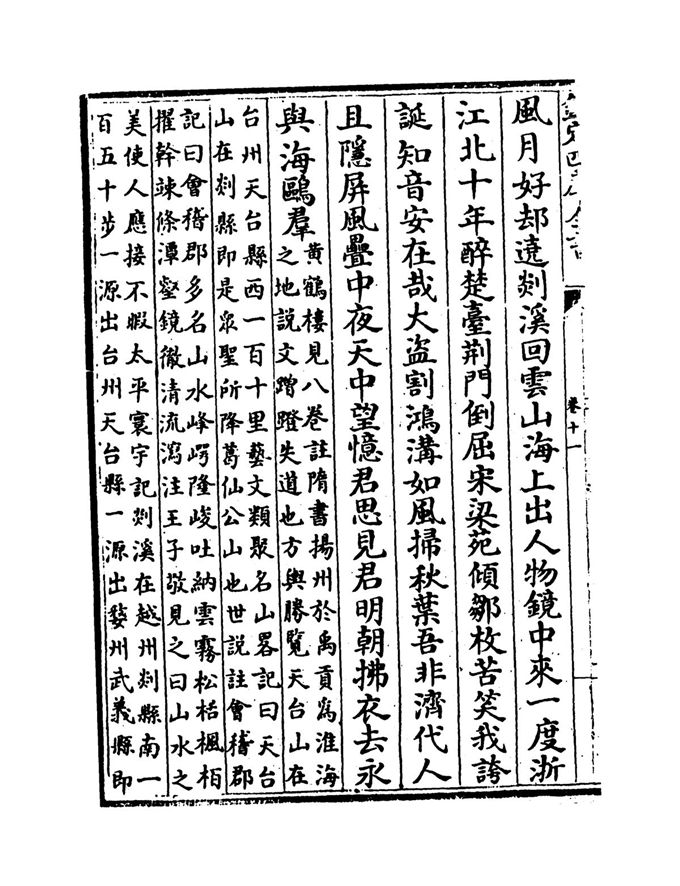 卷十一
風月好却遶剡溪回雲山海上出人物鏡中來一度浙
江北十年醉楚臺荆門倒屈宋梁苑傾鄒枚苦笑我誇
誕知音安在哉大盜割鴻溝如風掃秋葉吾非濟代人
且隱屏風疊中夜天中望憶君思見君明朝拂衣去永
與海鷗羣
黃鶴樓見八卷註隋書揚州於禹貢爲淮海
之地說文蹭蹬失道也方輿勝覽天台山在
台州天台縣西一百十里藝文類聚名山畧記曰天台
山在剡縣即是衆聖所降葛仙公山也世說註會稽郡
記曰會稽郡多名山水峰崿隆峻吐納雲霧松栝楓栢
擢幹竦條潭壑鏡徹清流瀉注王子敬見之曰山水之
美使人應接不暇太平寰宇記剡溪在越州剡縣南一
百五十步一源出台州天台縣一源出婺州武義縣即